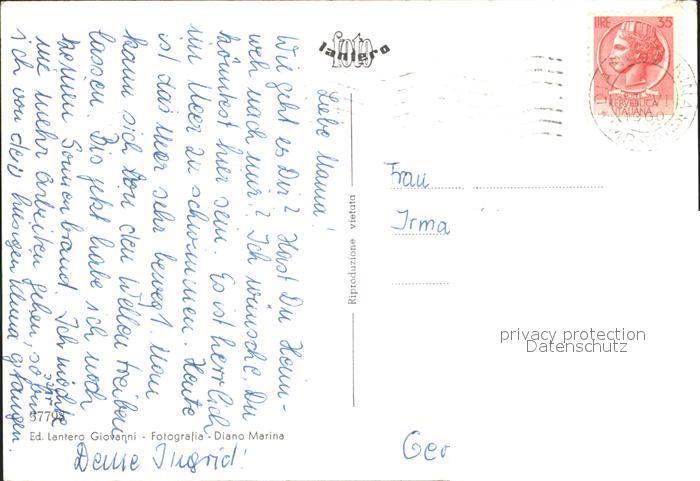 Liebe Mama!
Wie geht es Dir? Hast Du Heim-
weh nach mir? Ich wünsche, Du
könntest hier sein. Es ist herrlich
im Meer zu schwimmen. Heute
ist das Meer sehr bewegt. Man
kann sich von den Wellen treiben
lassen. Bis jetzt habe ich noch
keinen Sonnenbrand. Ich möchte
nie mehr arbeiten gehen, so bin
ich von dem hiesigen Klima gefangen.
Deine Ingrid!
foto
lantero
Riproduzione vietata
37798
Ed. Lantero Giovanni - Fotografia - Diano Marina
LIRE 35
POSTE
REPVBBLICA
ITALIANA
Frau
Irma
Ger
privacy protection
Datenschutz